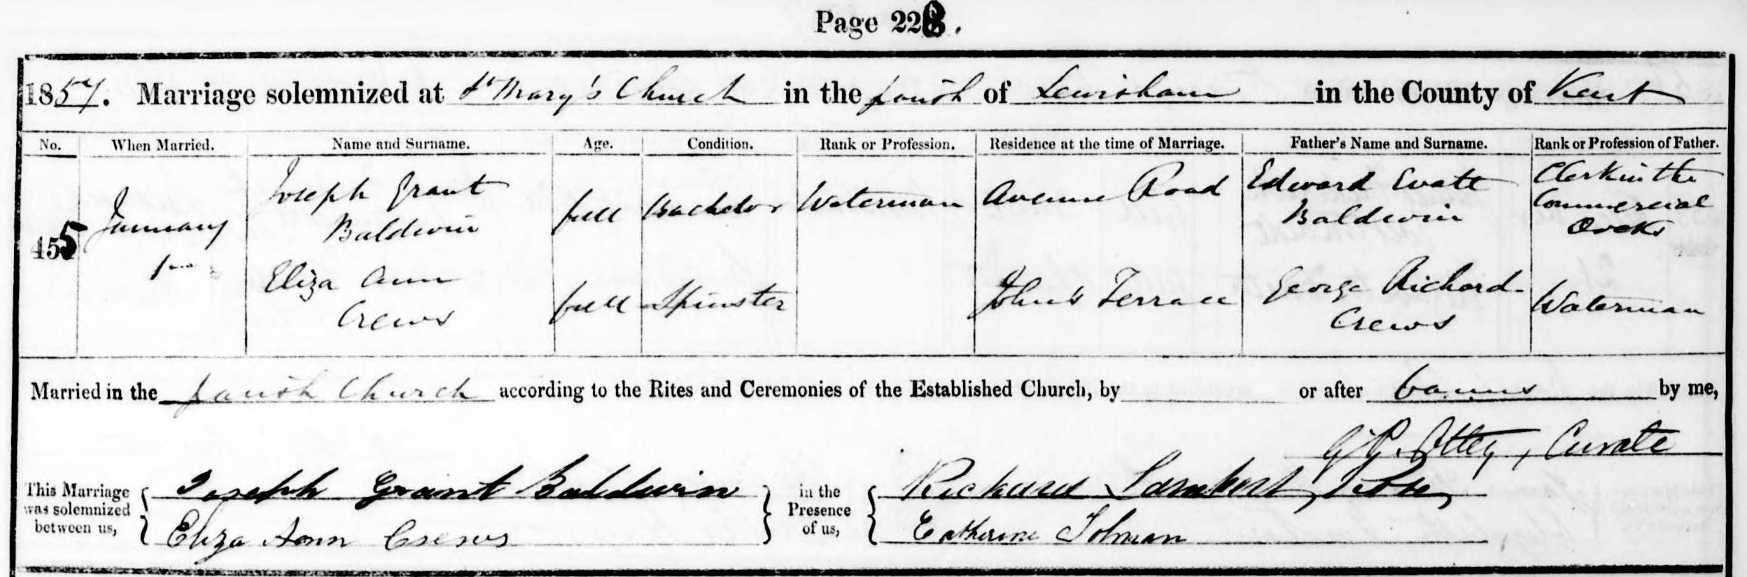 Page 228.
1857. Marriage solemnized at St Mary's Church in the parish of Lewisham in the County of Kent
No. When Married. Name and Surname. Age. Condition. Rank or Profession. Residence at the time of Marriage. Father's Name and Surname. Rank or Profession of Father.
455 January Joseph Grant Baldwin full Bachelor Waterman Avenue Road Edward Evatt Baldwin Clerk in the Commercial Docks
1 Eliza Ann Crews full Spinster John's Terrace George Richard Crews Waterman
Married in the parish Church according to the Rites and Ceremonies of the Established Church, by or after banns by me,
Curate
This Marriage was solemnized between us, Joseph Grant Baldwin in the Presence of us, Richard Lambert
Eliza Ann Crews Catherine Tolman